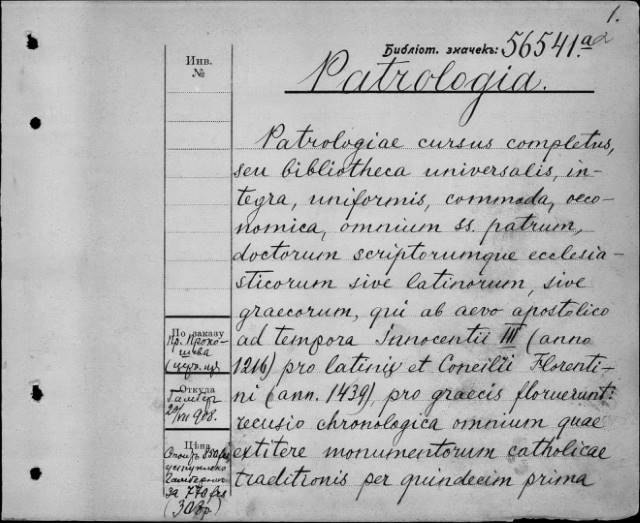 1.
Библіот. значекъ: 56541.a2
Patrologia.
Инв.
№
Patrologiae cursus completus,
seu bibliotheca universalis, in-
tegra, uniformis, commoda, oeco-
nomica, omnium ss. patrum,
doctorum scriptorumque ecclesia-
sticorum sive latinorum, sive
graecorum, qui ab aevo apostolico
ad tempora Innocentii III (anno
1216) pro latinis et Concilii Florenti-
ni (ann. 1439) pro graecis floruerunt:
recusio chronologica omnium quae
extitere monumentorum catholicae
traditionis per quindecim prima
По заказу
Пр. Прохо-
Откуда
908.
Цѣна
за 770 frs